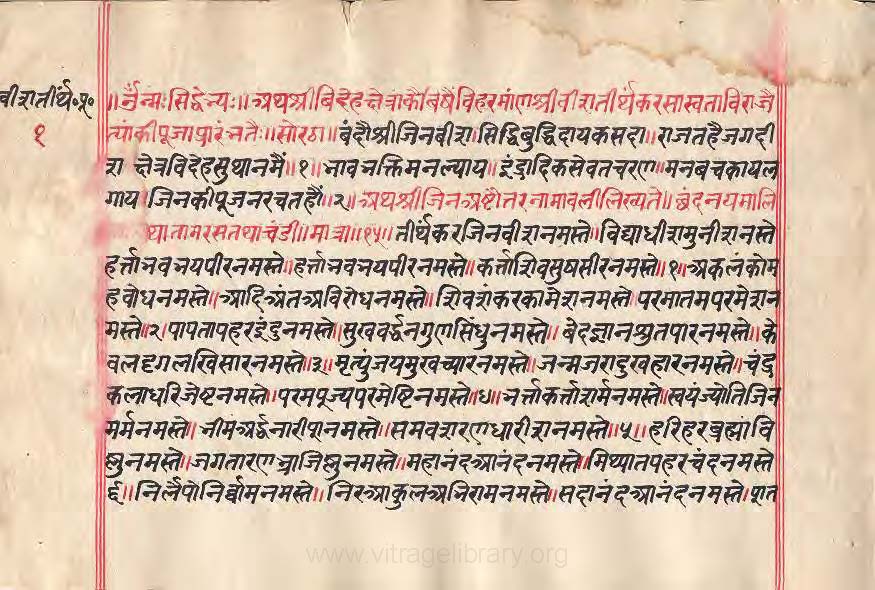 वीशतीर्थ॰पू॰
१
॥र्नमःसिद्धेभ्यः॥अथश्रीबिदेहक्षेत्राकैबिषैविहरमांणश्रीवीशतीर्थंकरसास्वताविराजै
त्यांकीपूजाप्रारंभतै॥सोरठा॥बंदौश्रीजिनबीश।सिद्धिबुद्धिदायकसदा॥राजतहैजगदी
श क्षेत्रविदेहसुथानमैं॥१॥भावभक्तिमनल्याय।इंद्रादिकसेवतचरण॥मनबचकायल
गाय।जिनकीपूजनरचतहौं॥२॥अथश्रीजिनअष्टोत्तरनामावलीलिख्यते॥छंदनयमालि
तामरसतथाचंडी॥मात्रा॥१५॥तीर्थंकरजिनवीशनमस्ते॥विद्याधीशमुनीशनस्ते
हर्त्ताभवभयपीरनमस्ते॥हर्त्ताभवभयपीरनमस्ते॥कर्त्ताशिवसुषसीरनमस्ते॥१॥अकलंकोम
हबोधनमस्ते॥आदिअंतअविरोधनमस्ते॥शिवशंकरकामेशनमस्ते।परमातमपरमेशन
मस्ते॥२।पापतापहरइंदुनमस्ते।सुखवर्द्धनगुणसिंधुनमस्ते॥बेदज्ञानश्रुतपारनमस्ते॥के
वलदृगलखिसारनमस्ते॥३॥मृत्युंजयमुखच्यारनमस्ते॥जन्मजरादुखहारनमस्ते॥चंद्र
कलाधरिजेष्टनमस्ते॥परमपूज्यपरमेष्टिनमस्ते॥४॥भर्त्ताकर्त्ताशर्मनमस्ते॥स्वयंज्योतिजिन
मर्मनमस्ते॥भीमंअर्द्धनारीशनमस्ते॥समवशरणधारीशनमस्ते॥५॥हरिहरब्रह्मांवि
ष्णुनमस्ते॥जगतारणभ्राजिष्णुनमस्ते॥महानंदआनंदनमस्ते॥मिथ्यातपहरचंदनमस्ते
६॥निर्लेपोनिर्द्धामनमस्ते॥निरआकुलअभिरामनमस्ते॥सदानंदआनंदनमस्ते।घात
www.vitragelibrary.org